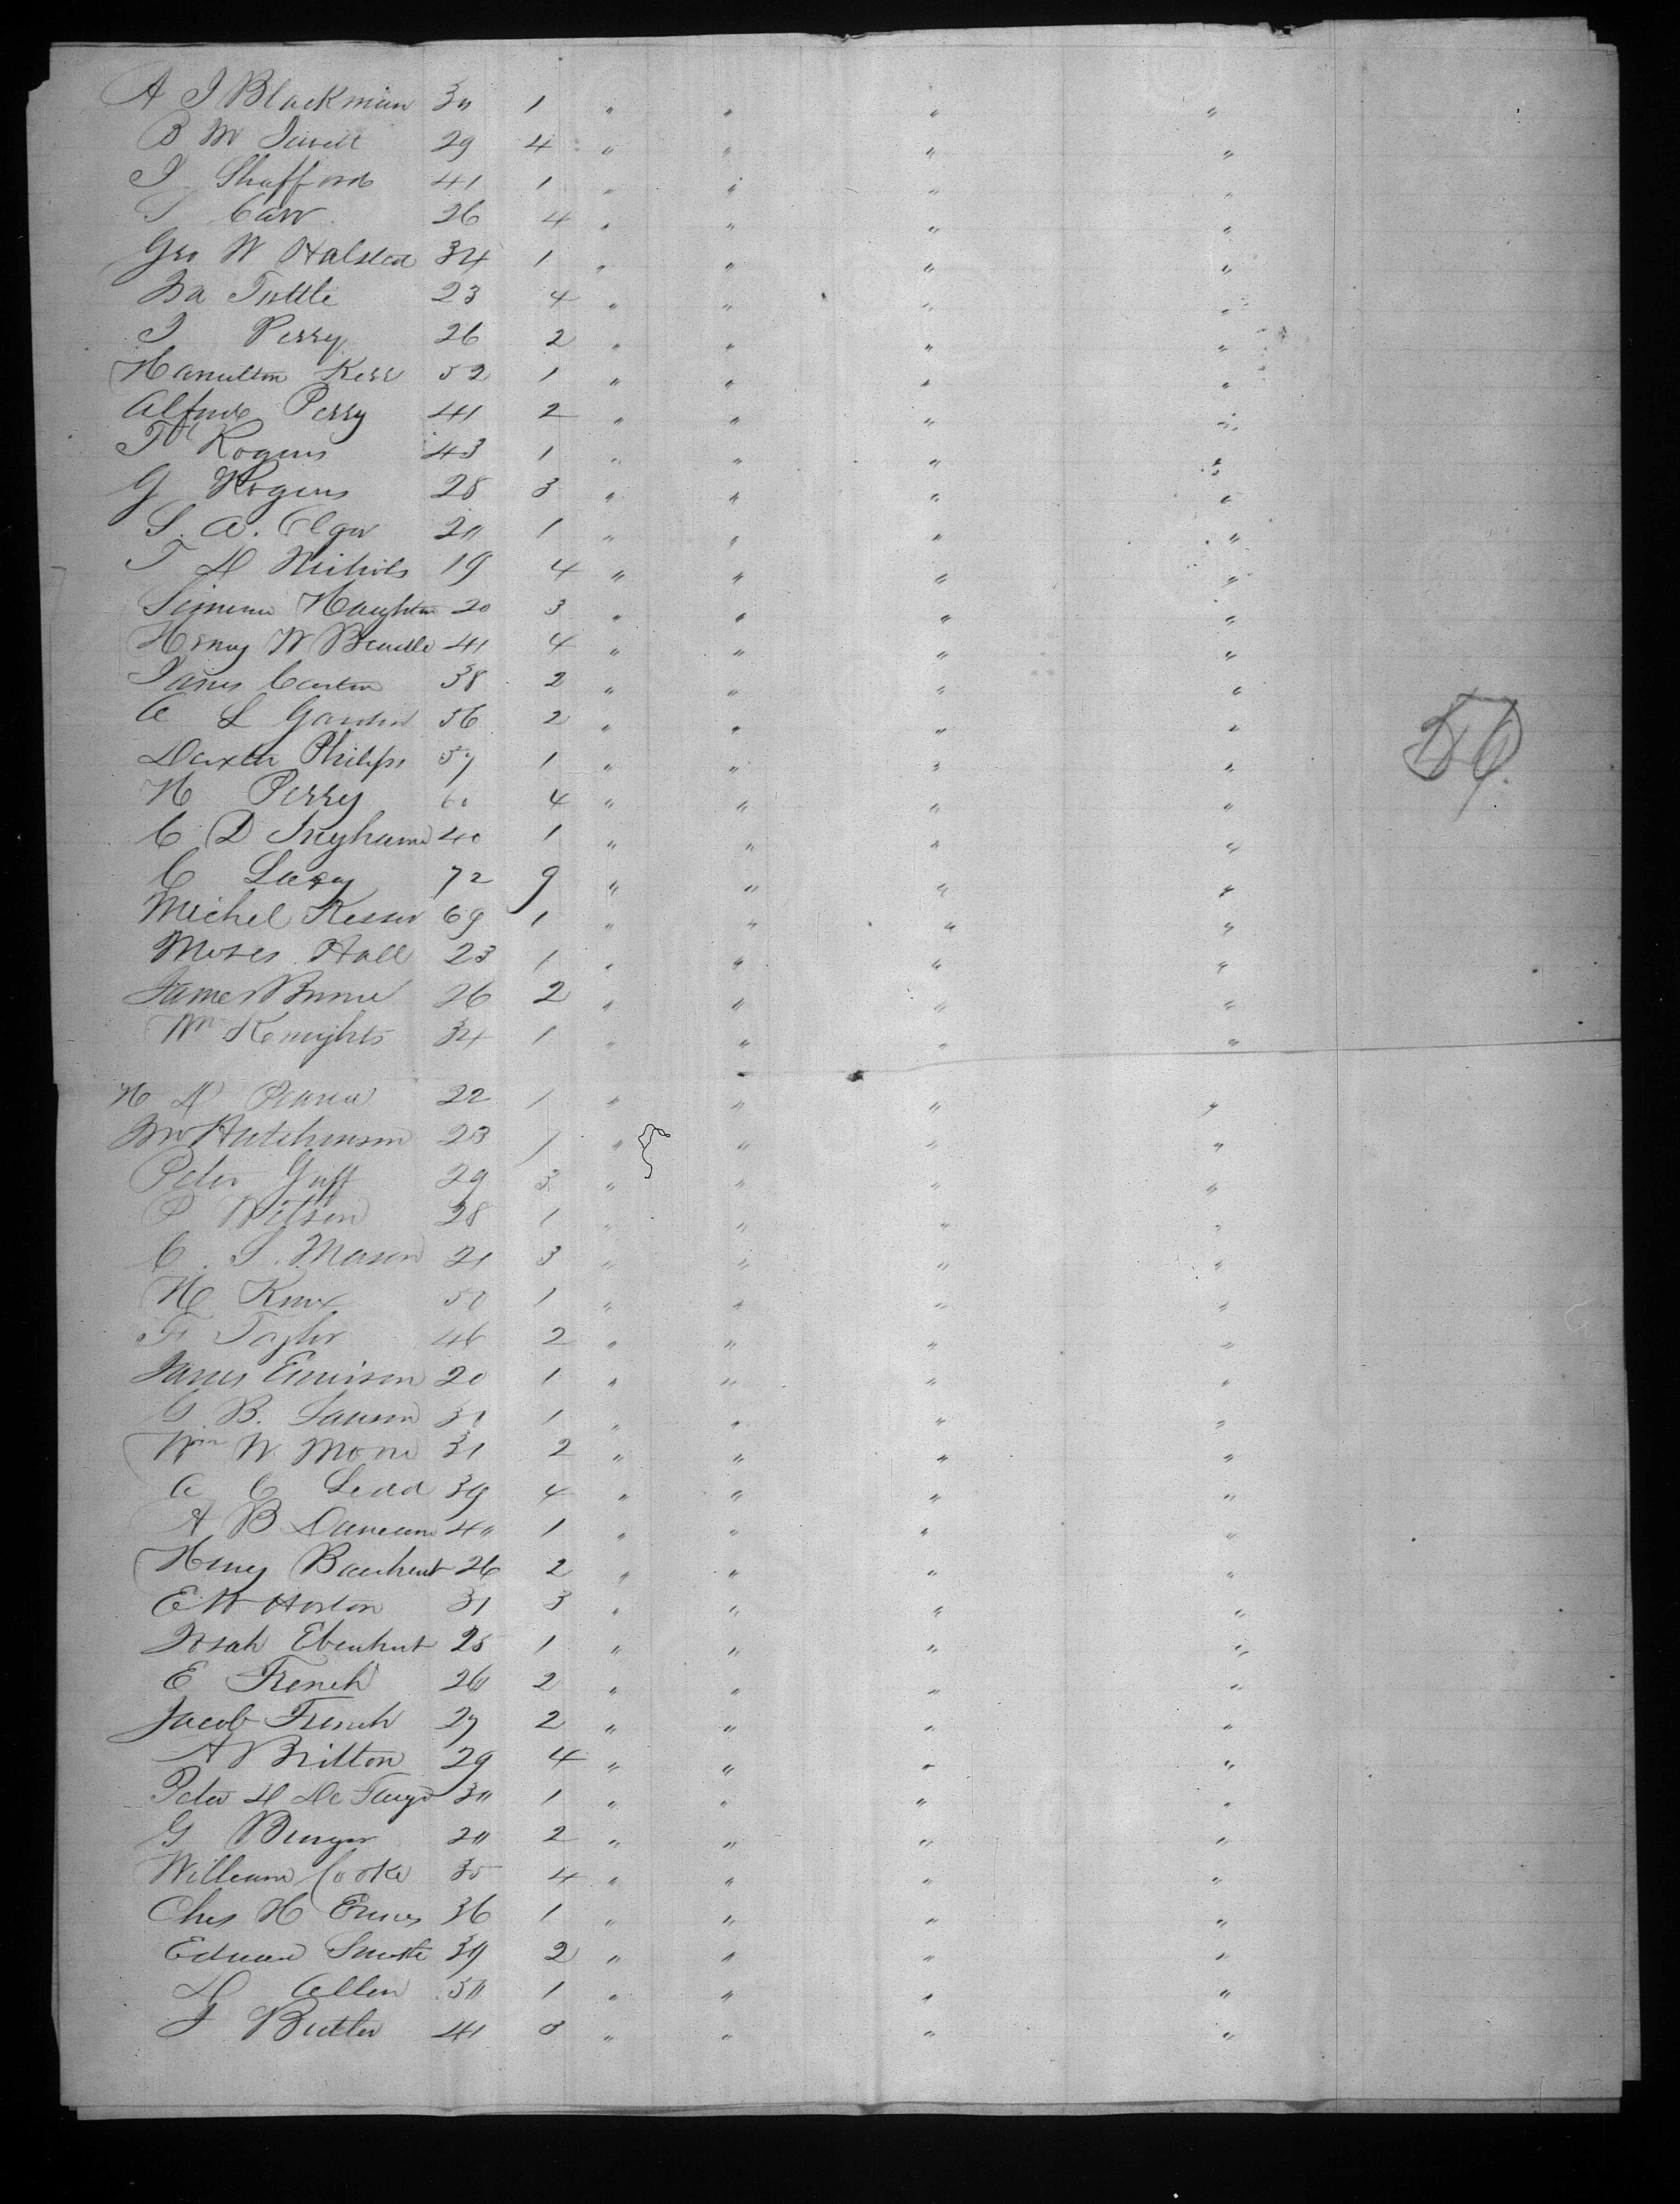 A J Blackman 30 1 " " " "
B M Jewell 29 4 " " " "
J Shafford 41 1 " " " "
T Carr 26 4 " " " "
Geo W Halsted 34 1 " " " "
Ira Tuttle 23 4 " " " "
J Perry 26 2 " " " "
Hamilton Kerr 52 1 " " " "
Alfred Perry 41 2 " " " "
Rogers 43 1 " " " "
G Rogers 28 3 " " " "
S. A. 20 1 " " " "
T D Nichols 19 4 " " " "
Simeon Haughton 20 3 " " " "
Henry W 41 4 " " " "
James Carten 38 2 " " " "
A L 56 2 " " " "
Dexter Philips 57 1 " " " "
H Perry 60 4 " " " "
C D Inghram 40 1 " " " "
C 72 9 " " " "
Michel Kesser 69 1 " " " "
Moses Hall 23 1 " " " "
James 26 2 " " " "
Wm Knights 34 1 " " " "
H D 22 1 " " " "
Hutchinson 23 1 " " " "
Peter Guff 29 3 " " " "
P Wilson 28 1 " " " "
C. S. Mason 21 3 " " " "
H Knox 50 1 " " " "
F Taylor 46 2 " " " "
James Emirson 20 1 " " " "
G. B. 30 1 " " " "
Wm W. Morre 31 2 " " " "
A C 39 4 " " " "
A B Duncan 40 1 " " " "
Henry 26 2 " " " "
E W Horton 31 3 " " " "
Noah Ebenhut 25 1 " " " "
E French 20 2 " " " "
Jacob French 27 2 " " " "
A Britton 29 4 " " " "
Peter D 30 1 " " " "
G Burger 20 2 " " " "
William Cooke 35 4 " " " "
Chs H 36 1 " " " "
Edward 39 2 " " " "
D Allen 50 1 " " " "
J Butler 41 3 " " " "